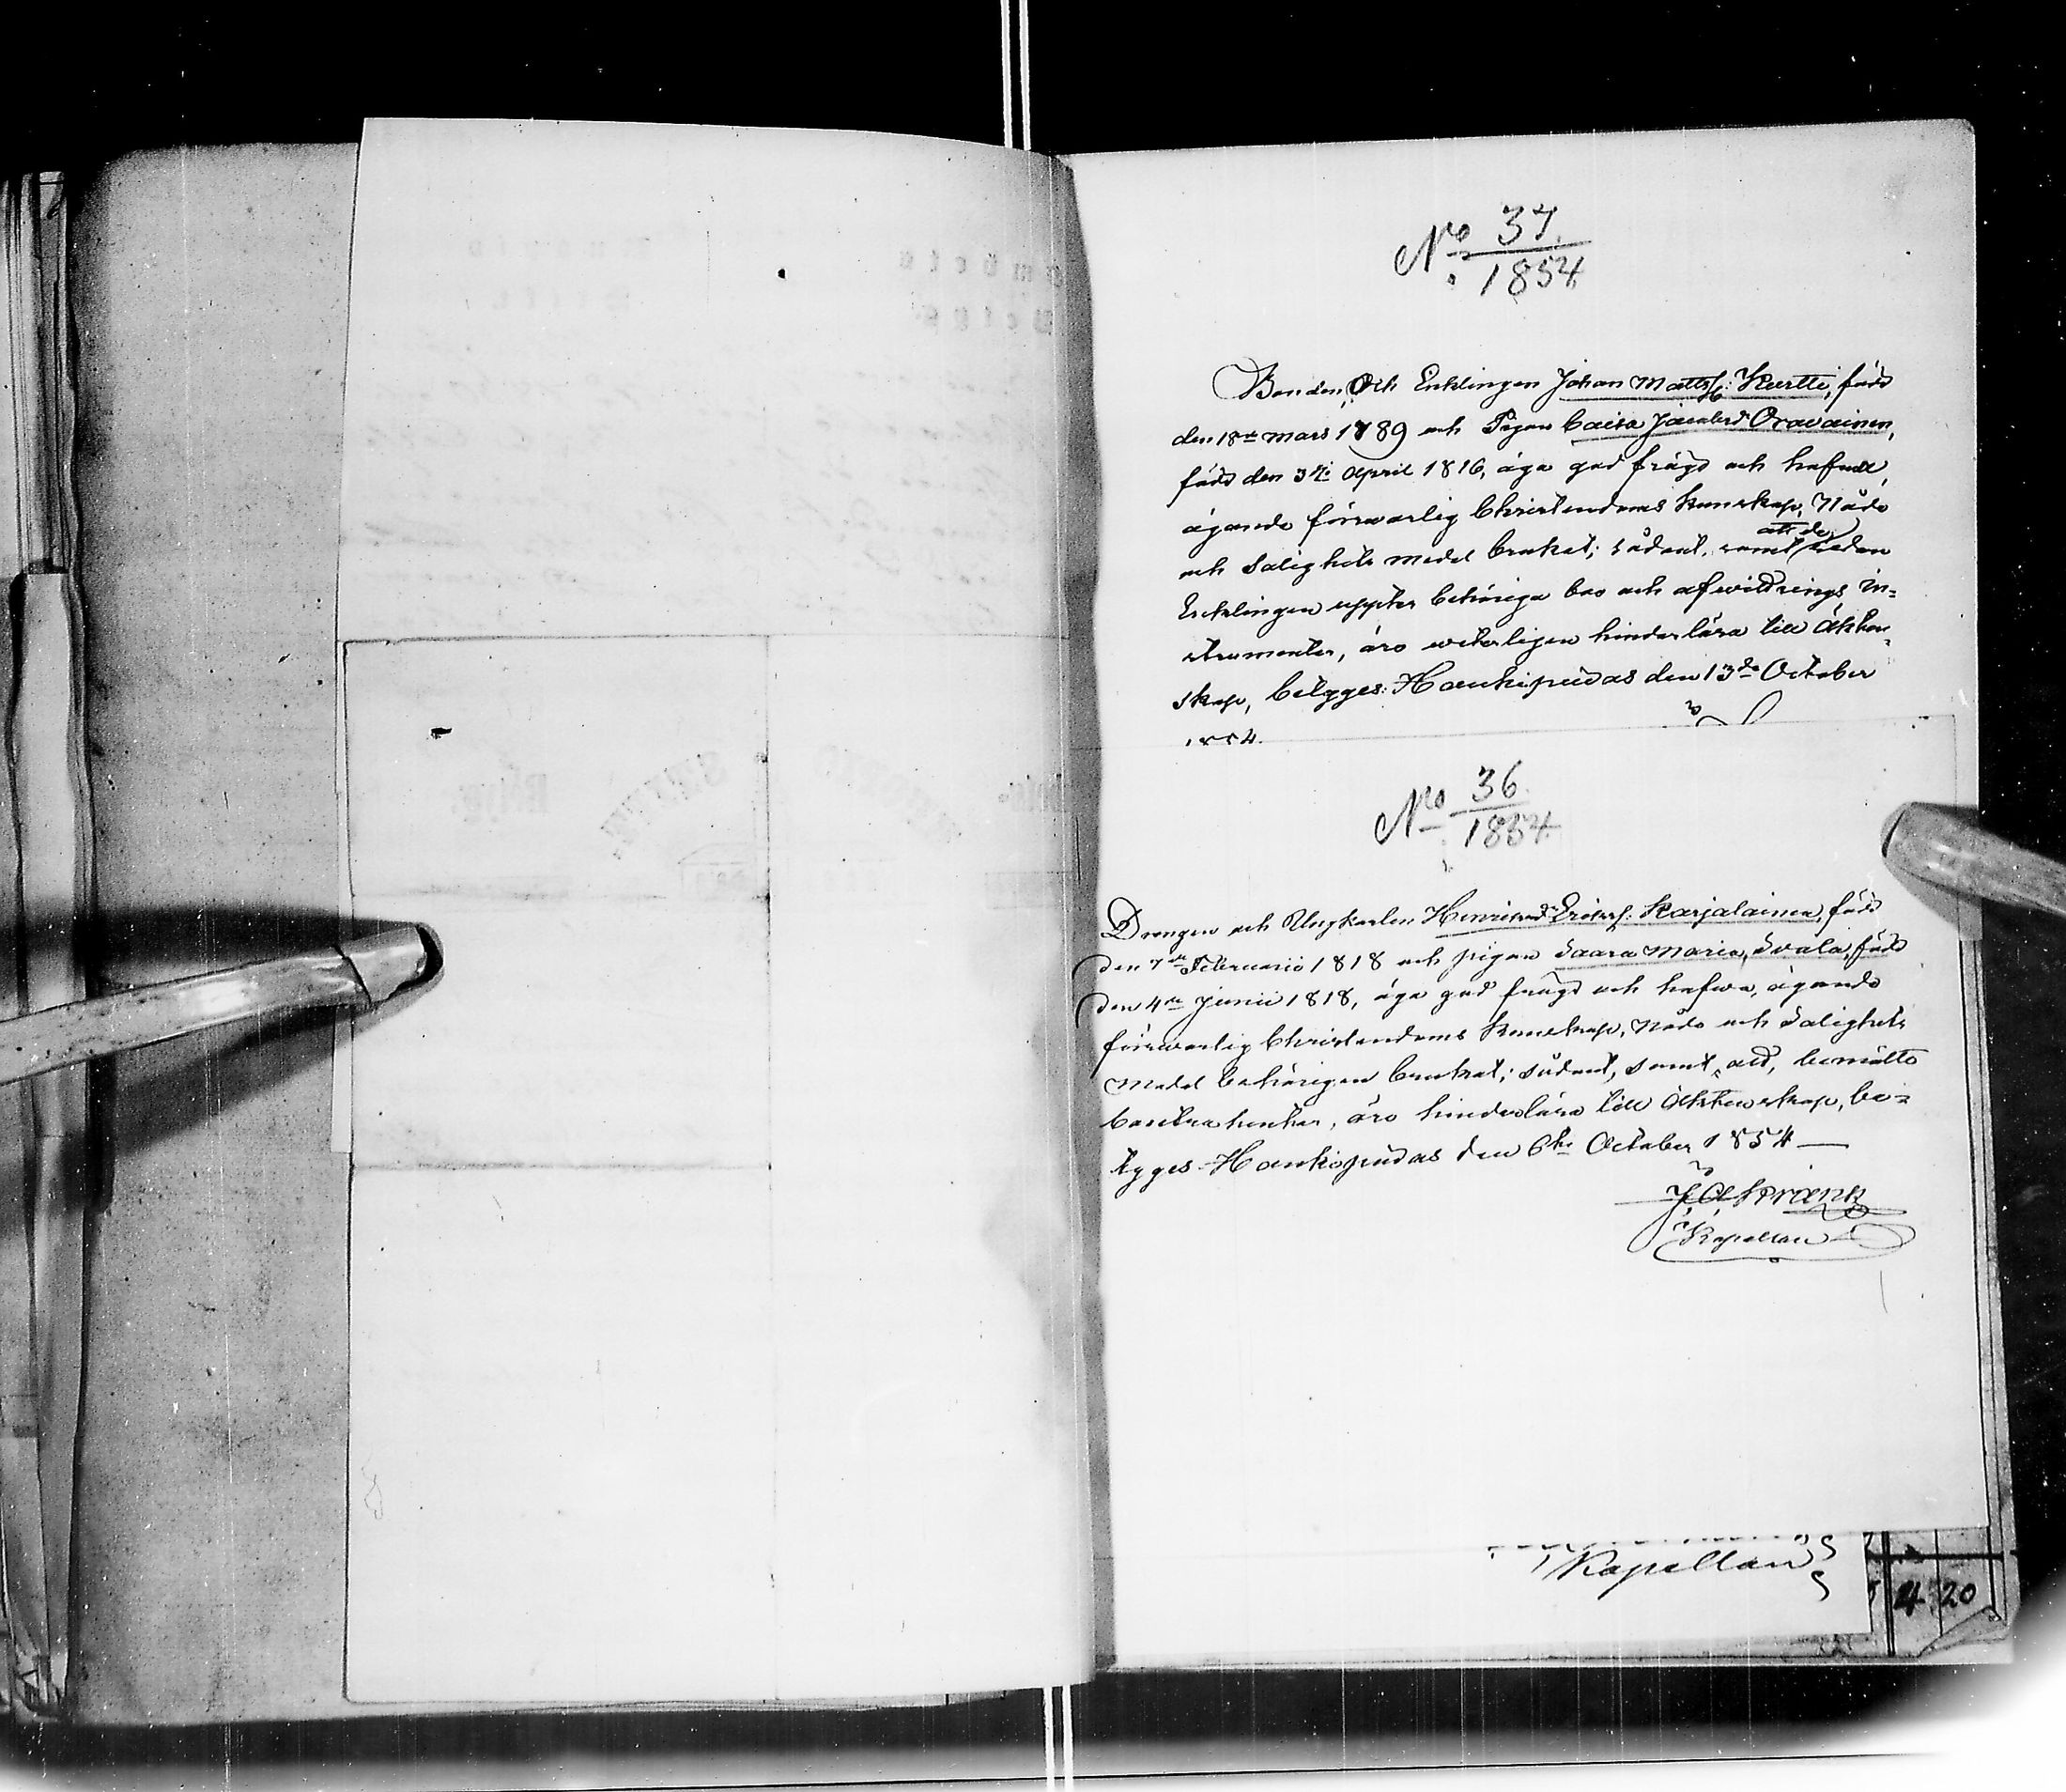 No 37.
1854
Bonden, Och Enklingen Johan Mattss: Kurtti, född
den 18de Mars 1789 och Pigan Caisa Jacobsd. Oravainen,
född den 3dje April 1816, äga god frägd och hafva,
ägande försvarlig Christendoms kunskap, Nåde
och Salighets medel brukat; sådant, samt att de, sedan
Encklingen uppter behöriga bo och afvittrings in-
strumenter, äro veterligen hinderlösa till Äkten-
skap, betygges: Haukipudas den 13de October
1854.
No 36.
1854
Drengen och Ungkarlen Henric Ericss: Karjalainen, född
den 7de Februarii 1818 och pigan Saara Maria, född
den 4de Junii 1818, äga god frägd och hafva, ägande
försvarlig Christendoms kunskap, Nåde och Salighets
Medel behörigen brukat; sådant, samt, att, bemälte
Contrahenter, äro hinderlösa till Äktenskap, be-
tygges Haukipudas den 6te October 1854
Kapellan
Kapellan
4 20